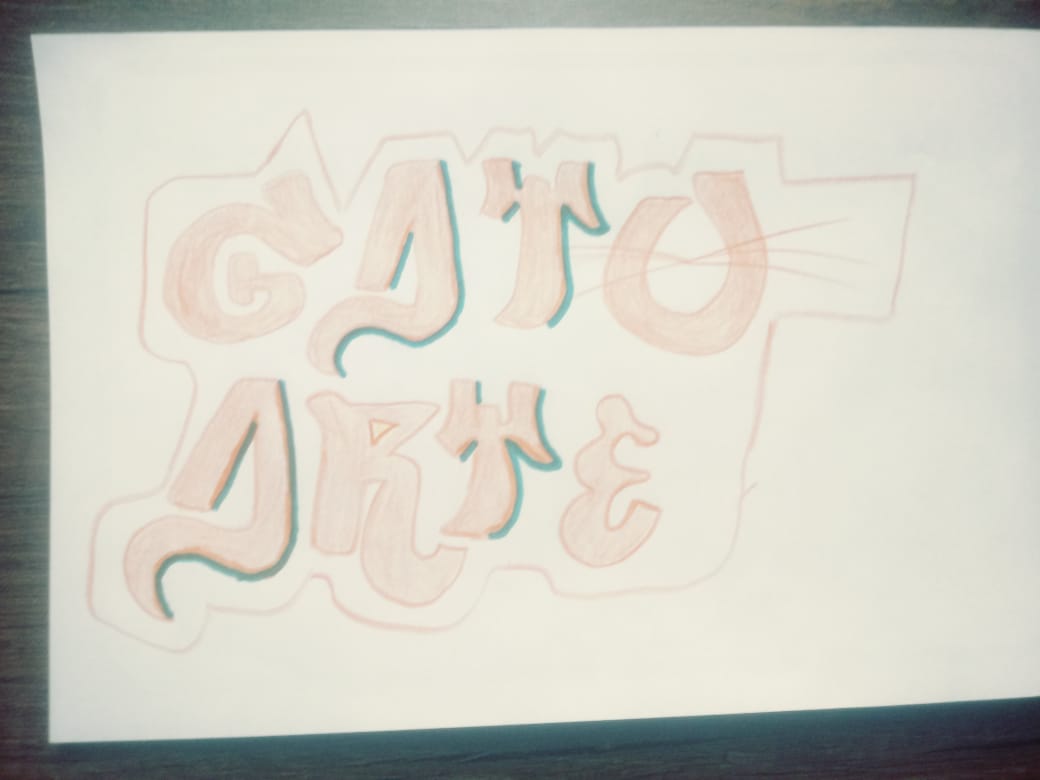 GATO
ARTE